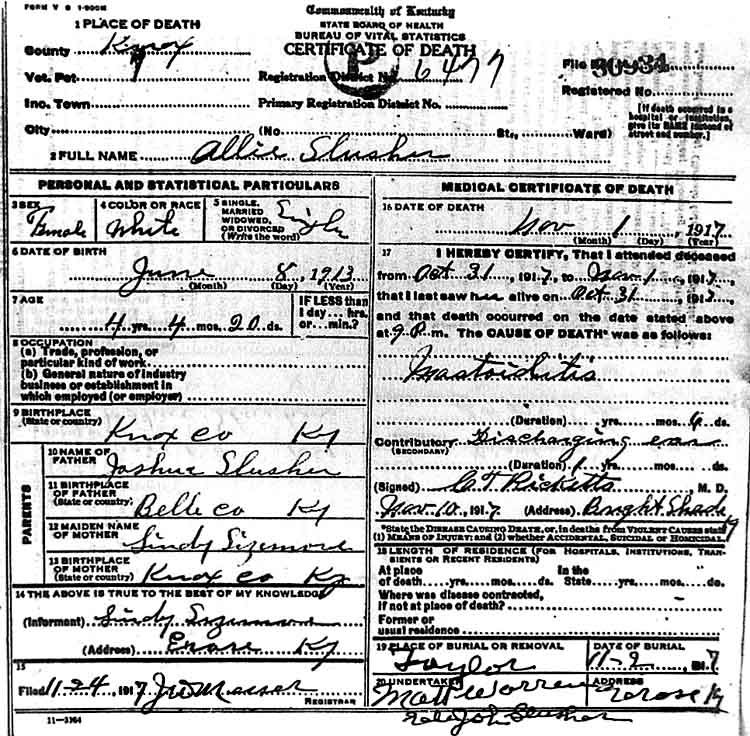 FORM V S 1-900M
Commonwealth of Kentucky
STATE BOARD OF HEALTH
BUREAU OF VITAL STATISTICS
CERTIFICATE OF DEATH
1 PLACE OF DEATH
County Knox
Vot. Pct
Registration District No. 6477
File No. 30934
Inc. Town
Primary Registration District No.
Registered No.
City (No. St., Ward)
[If death occurred in a hospital or institution, give its NAME instead of street and number.]
2 FULL NAME Allie Slusher
PERSONAL AND STATISTICAL PARTICULARS
3 SEX Female
4 COLOR OR RACE White
5 SINGLE, MARRIED WIDOWED, OR DIVORCED (Write the word) Single
6 DATE OF BIRTH
June 8, 1913
(Month) (Day) (Year)
7 AGE
4 yrs. 4 mos. 20 ds.
IF LESS than 1 day... hrs. or... min.?
8 OCCUPATION
(a) Trade, profession, or particular kind of work
(b) General nature of industry business or establishment in which employed (or employer)
9 BIRTHPLACE (State or country)
Knox co Ky
PARENTS
10 NAME OF FATHER Joshua Slusher
11 BIRTHPLACE OF FATHER (State or country) Belle co Ky
12 MAIDEN NAME OF MOTHER Sindy Sizemore
13 BIRTHPLACE OF MOTHER (State or country) Knox co Ky
14 THE ABOVE IS TRUE TO THE BEST OF MY KNOWLEDGE
(Informant) Sindy Sizemore
(Address) Erose Ky
15
Filed 11-24, 1917 J W Messer
REGISTRAR
11-3164
MEDICAL CERTIFICATE OF DEATH
16 DATE OF DEATH
Nov 1, 1917
(Month) (Day) (Year)
17 I HEREBY CERTIFY, That I attended deceased
from Oct 31, 1917, to Nov 1, 1917,
that I last saw her alive on Oct 31, 1917,
and that death occurred on the date stated above
at 9 P.m. The CAUSE OF DEATH* was as follows:
Mastoiditis
(Duration) yrs. mos. 6 ds.
Contributory (SECONDARY) Discharging ear
(Duration) 1 yrs. mos. ds.
(Signed) C T Ricketts M. D.
Nov. 10, 1917 (Address) Bright Shade Ky
*State the DISEASE CAUSING DEATH, or, in deaths from VIOLENT CAUSES state
(1) MEANS OF INJURY; and (2) whether ACCIDENTAL, SUICIDAL OR HOMICIDAL.
18 LENGTH OF RESIDENCE (FOR HOSPITALS, INSTITUTIONS, TRANSIENTS OR RECENT RESIDENTS)
At place of death yrs. mos. ds. In the State yrs. mos. ds.
Where was disease contracted,
if not at place of death?
Former or
usual residence
19 PLACE OF BURIAL OR REMOVAL Taylor
DATE OF BURIAL 11-2, 1917
20 UNDERTAKER Matt Warren
ADDRESS Erose Ky
Slusher